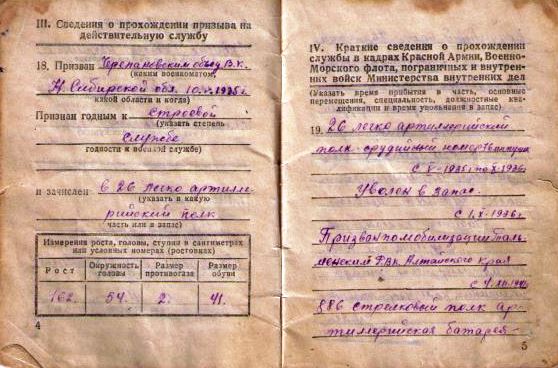 III. Сведения о прохождении призыва на
действительную службу
18. Призван Черепановским объед. В.К.
(каким военкоматом,
Н. Сибирской обл. 10. 1935 г
какой области и когда)
Признан годным к строевой
(указать степень
службе
годности к военной службе)
и зачислен в 26 легко артилле
(указать в какую
рийский полк
часть или в запас)
Измерения роста, головы, ступни в сантиметрах
или условных номерах (ростовках)
Рост Окружность головы Размер противогаза Размер обуви
162. 54. 2. 41.
4
IV. Краткие сведения о прохождении
службы в кадрах Красной Армии, Военно-
Морского флота, пограничных и внутрен-
них войск Министерства внутренних дел
(Указать время прибытия в часть, основные
перемещения, специальность, должностные ква-
лификации и время увольнения в запас)
19. 26 легко артиллерийский
полк - орудийный номер
с V-1935 г по X-1936 г
Уволен в запас.
с 1. X-1936 г
Призван по мобилизации Таль-
менским РВК Алтайского края
с
886 стрелковый полк ар-
тиллерийская батарея -
5